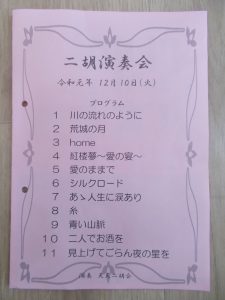 二胡演奏会
令和元年 12月10日(火)
プログラム
1 川の流れのように
2 荒城の月
3 home
4 紅楼夢～愛の宴～
5 愛のままで
6 シルクロード
7 あゝ人生に涙あり
8 糸
9 青い山脈
10 二人でお酒を
11 見上げてごらん夜の星を
演奏 天長二胡会